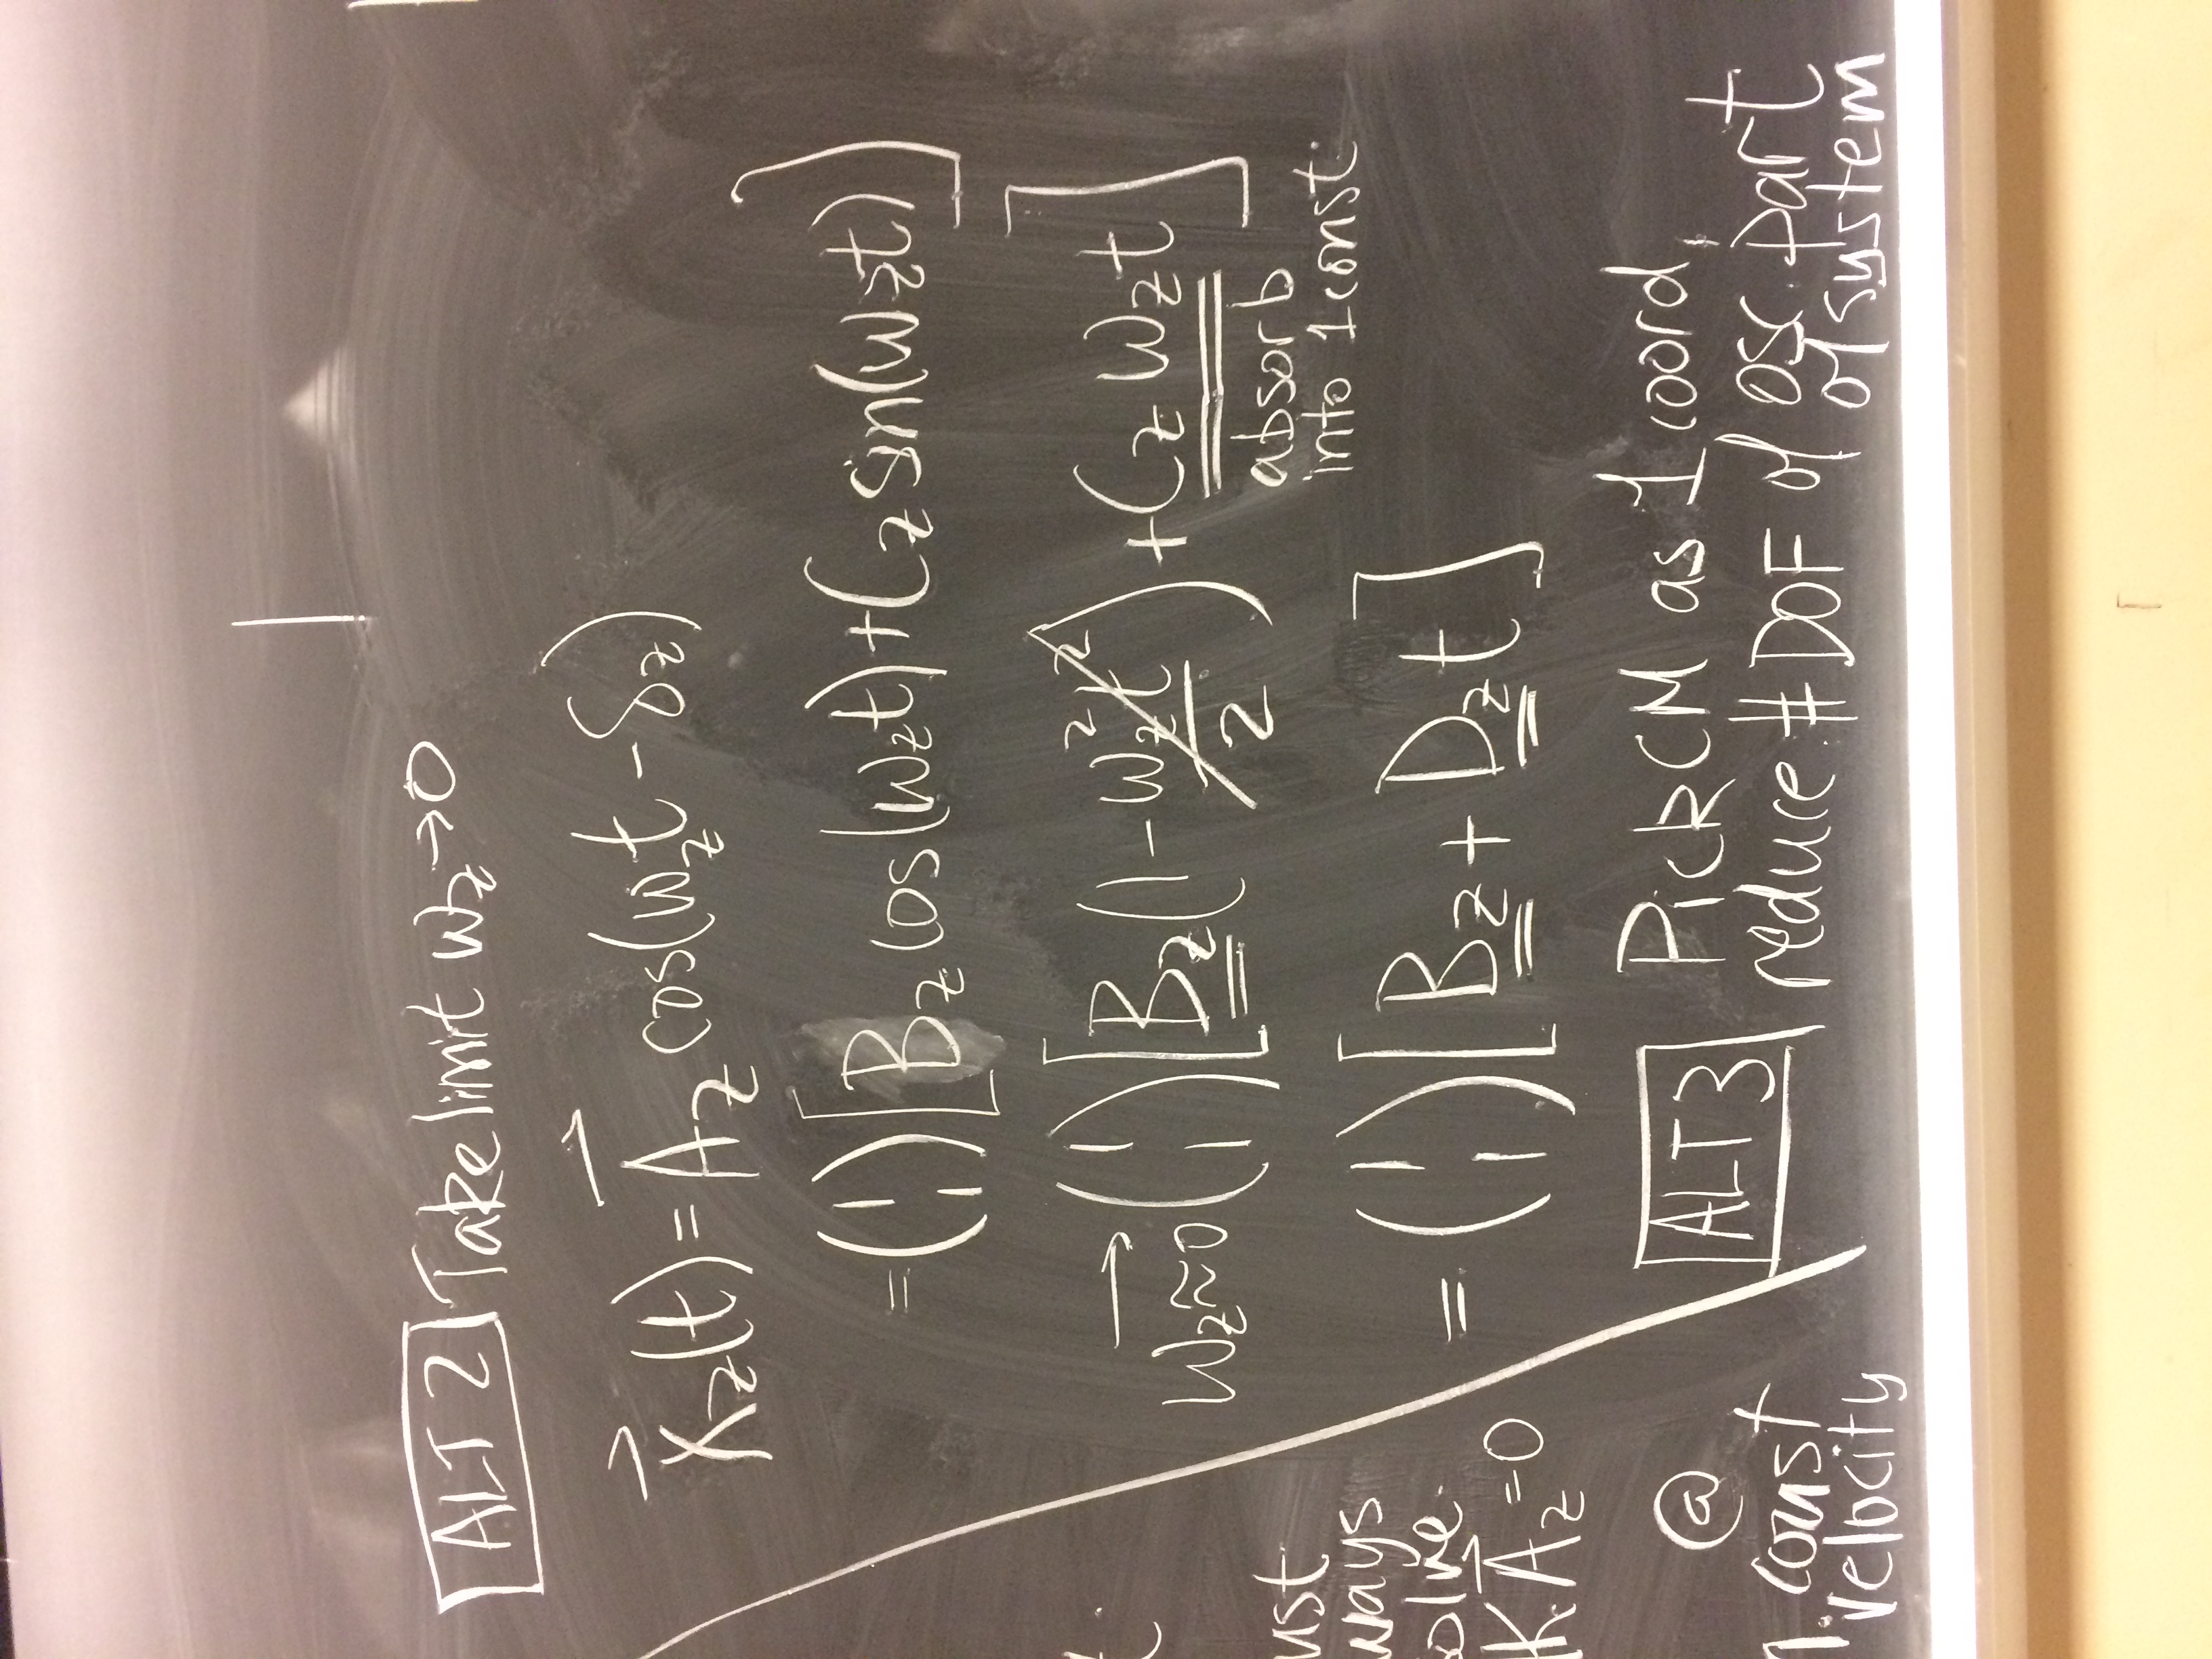 ALT 2 Take limit ω_z→0
x⃗_z(t) = A⃗_z cos(ω_z t - δ_z)
= (1 1) [B_z cos(ω_z t) + C_z sin(ω_z t)]
→ ω_z≈0 (1 1) [B_z (1 - ω_z² t²/2) + C_z ω_z t]
absorb
into 1 const.
= (1 1) [B_z + D_z t]
ALT 3 Pick CM as 1 coord,
reduce # DOF of osc. part
of system
ways
K A⃗_z = 0
@
const
velocity